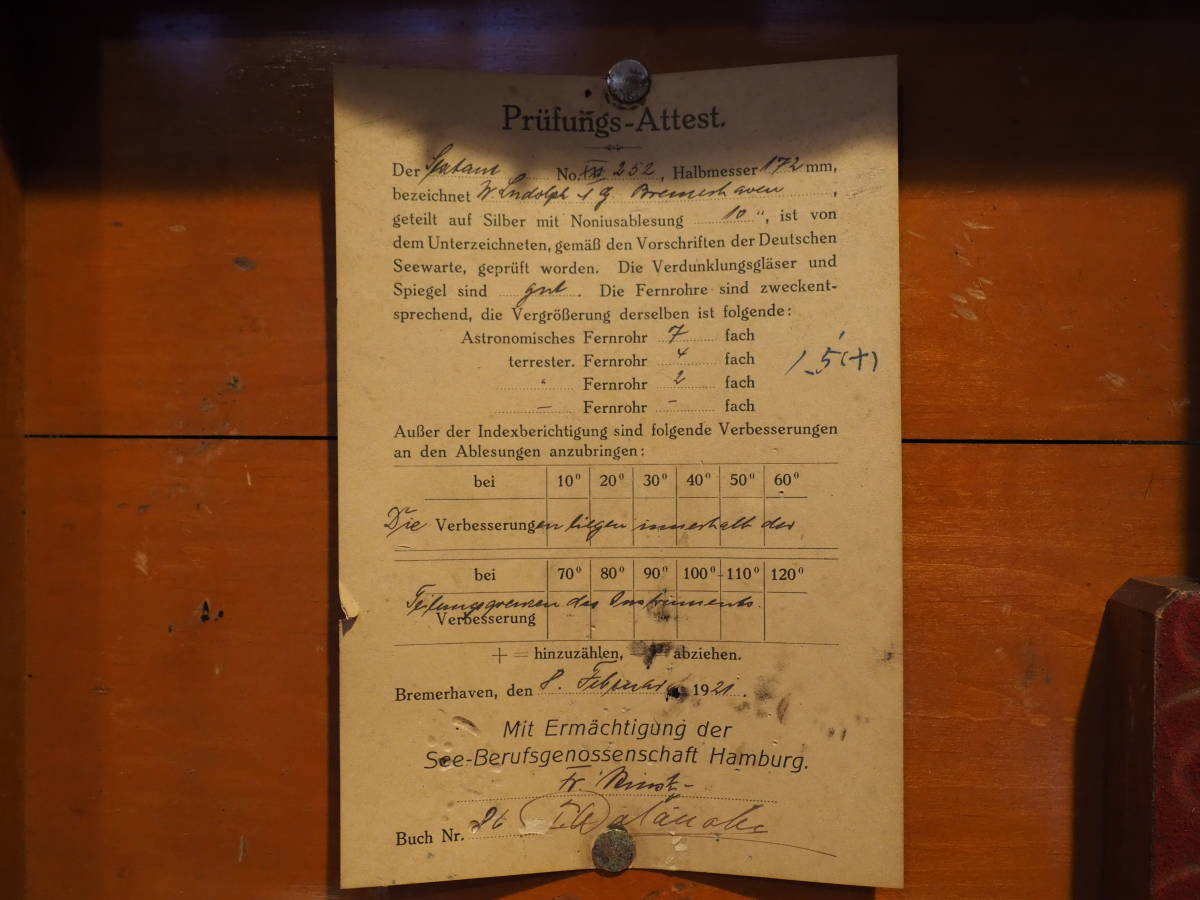 Prüfungs-Attest.
Der Sextant No. 252, Halbmesser 172 mm,
bezeichnet W. Ludolph Bremerhaven,
geteilt auf Silber mit Noniusablesung 10 ", ist von
dem Unterzeichneten, gemäß den Vorschriften der Deutschen
Seewarte, geprüft worden. Die Verdunklungsgläser und
Spiegel sind gut. Die Fernrohre sind zweckent-
sprechend, die Vergrößerung derselben ist folgende:
Astronomisches Fernrohr 7 fach
terrester. Fernrohr 4 fach
" Fernrohr 2 fach
– Fernrohr – fach
5'(+)
Außer der Indexberichtigung sind folgende Verbesserungen
an den Ablesungen anzubringen:
bei 10⁰ 20⁰ 30⁰ 40⁰ 50⁰ 60⁰
Die Verbesserungen liegen innerhalb der
bei 70⁰ 80⁰ 90⁰ 100⁰ 110⁰ 120⁰
Teilungsgrenzen des Instruments.
Verbesserung
+ = hinzuzählen, = abziehen.
Bremerhaven, den 8. Februar 1921.
Mit Ermächtigung der
See-Berufsgenossenschaft Hamburg.
Buch Nr. 26